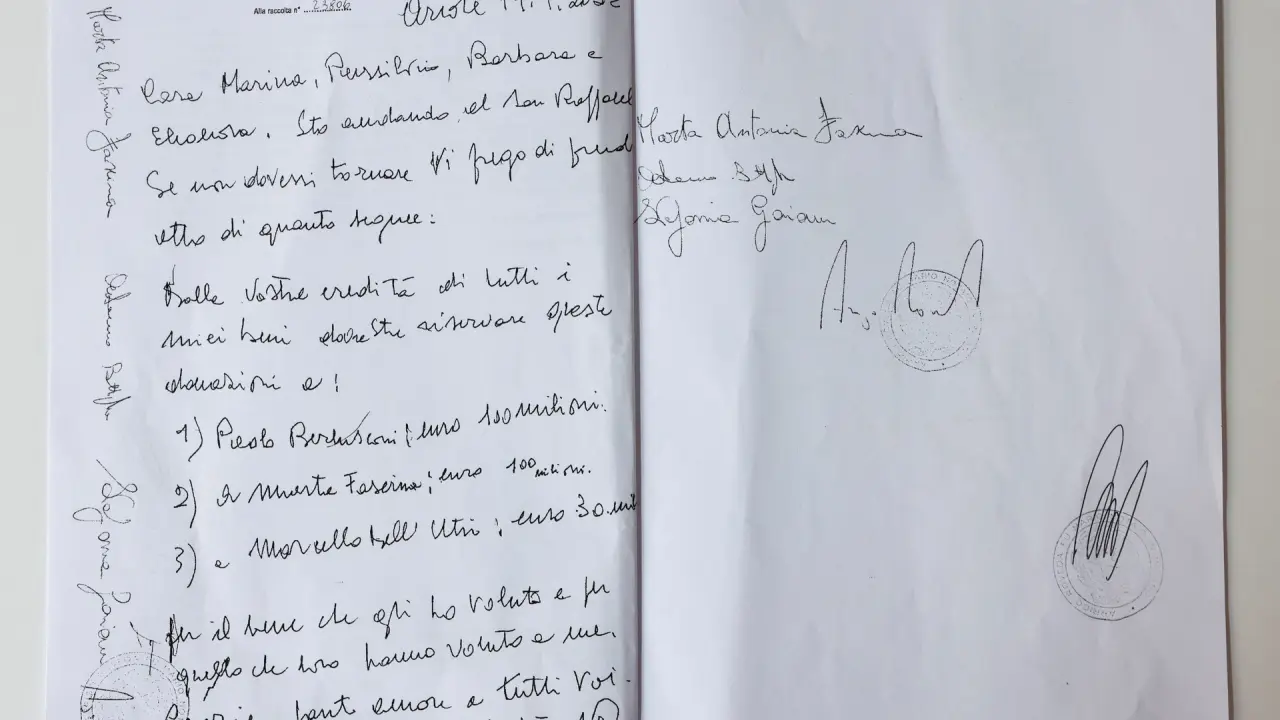 Alla raccolta n° 23806
Arcore
Cara Marina, Piersilvio, Barbara e
Eleonora. Sto andando al San Raffael
Se non dovessi tornare Vi prego di prend
atto di quanto segue:
Dalle vostre eredità di tutti i
miei beni dovreste riservare queste
donazioni a:
1) Paolo Berlusconi: euro 100 milioni.
2) a Marta Fascina; euro 100 milioni.
3) a Marcello Dell'Utri; euro 30 mil
per il bene che gli ho voluto e per
quello che loro hanno voluto a me.
tanto amore a tutti voi.
Marta Antonia Fascina
Stefania
Marta Antonia Fascina
Stefania